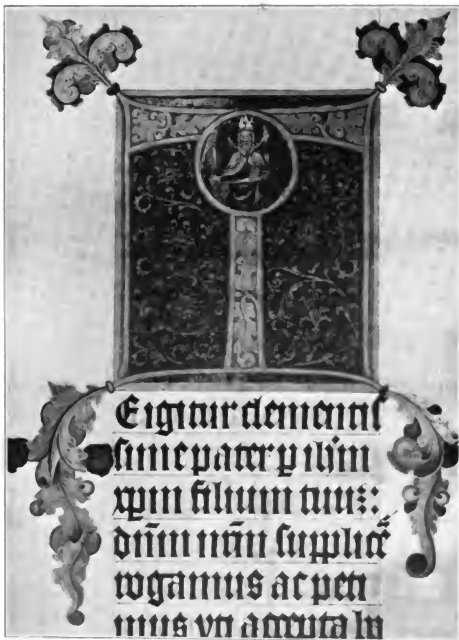 T
E igitur clementis
sime pater p ihm
xpm filium tuuz:
dn̄m nr̄m supplicē
rogamus ac peti
mus vti accepta